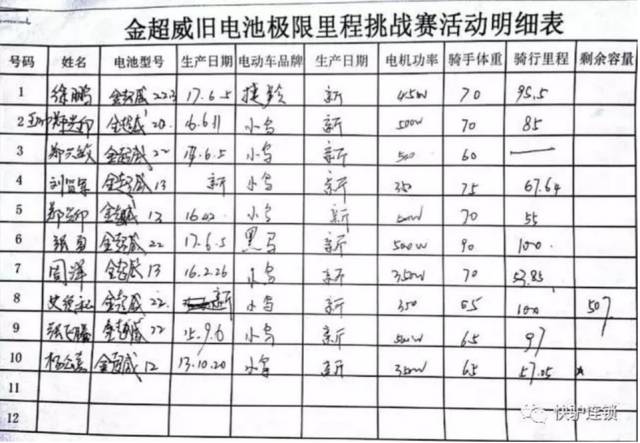 金超威旧电池极限里程挑战赛活动明细表
号码 姓名 电池型号 生产日期 电动车品牌 生产日期 电机功率 骑手体重 骑行里程 剩余容量
1 徐鹏 金超威223 17.6.5 新 450W 70 95.5
2 金超威20 16.6.11 小鸟 新 500W 70 85
3 金超威22 17.6.5 小鸟 新 500 60 —
4 金超威13 新 小鸟 新 350 75 67.64
5 金超威13 16.02 小鸟 新 500W 70 55
6 张勇 金超威22 17.6.5 黑马 新 500W 90 100
7 周洋 金超威13 16.2.26 小鸟 新 350W 70 53.85
8 金超威22 新 小鸟 新 350 65 100 507
9 张飞腾 金超威22 15.9.6 小鸟 新 500W 65 97
10 金超威12 13.10.20 小鸟 新 350W 65 57.05
11
12
快驴连锁